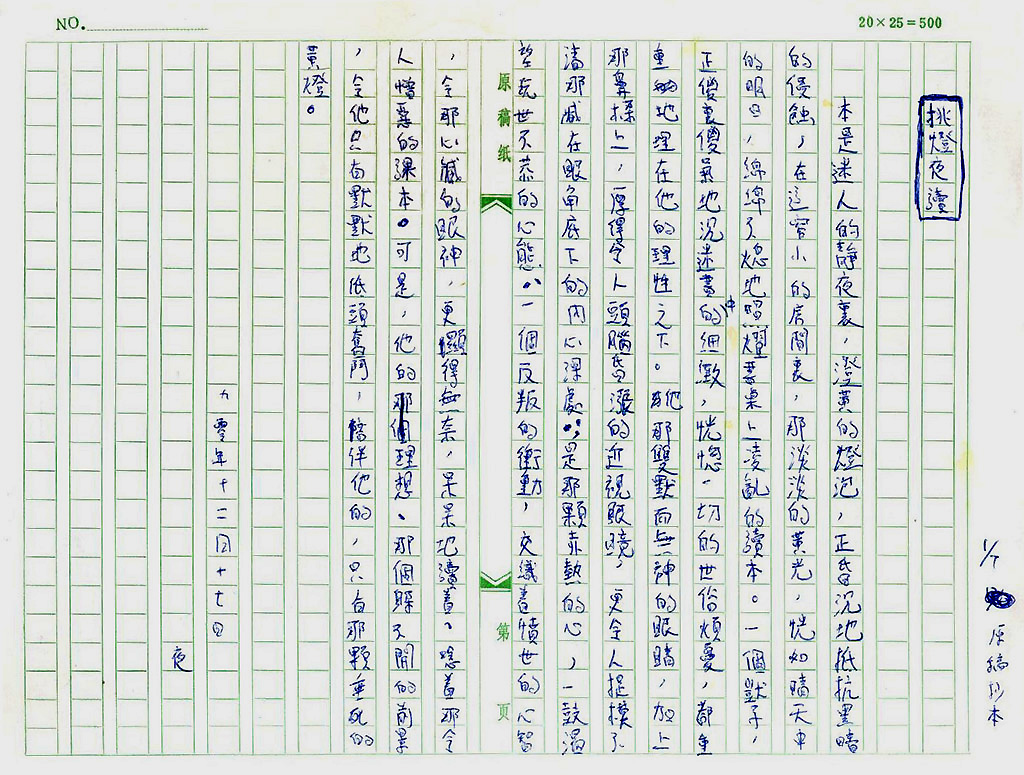 NO.
20×25=500
挑燈夜讀
本是迷人的靜夜裏，澄黃的燈泡，正昏沉地抵抗黑暗
的侵蝕，在這窄小的房間裏，那淡淡的黃光，恍如晴天中
的眼，綿綿了地照燿書桌上凌亂的讀本。一個獃子，
正傻裏傻氣地沉迷書中的細緻，恍惚一切的世俗煩憂，都重
重地埋在他的理性之下。他那雙默而無神的眼睛，加上
那鼻樑上，厚得令人頭腦昏漲的近視眼鏡，更令人捉摸不
清那藏在眼角底下的內心深處，是那顆赤熱的心，一鼓溫
望玩世不恭的心態；一個反叛的衝動，交織着憤世的心智
，令那心藏的眼神，更顯得無奈，呆呆地讀着、唸着那令
人憎惡的課本。可是，他的那個理想、那個躲不開的前景
，令他只有默默地低頭奮鬥，陪伴他的，只有那顆垂死的
黃燈。
九零年十二月十七日
夜
原稿紙
第 頁
1/7
原稿抄本